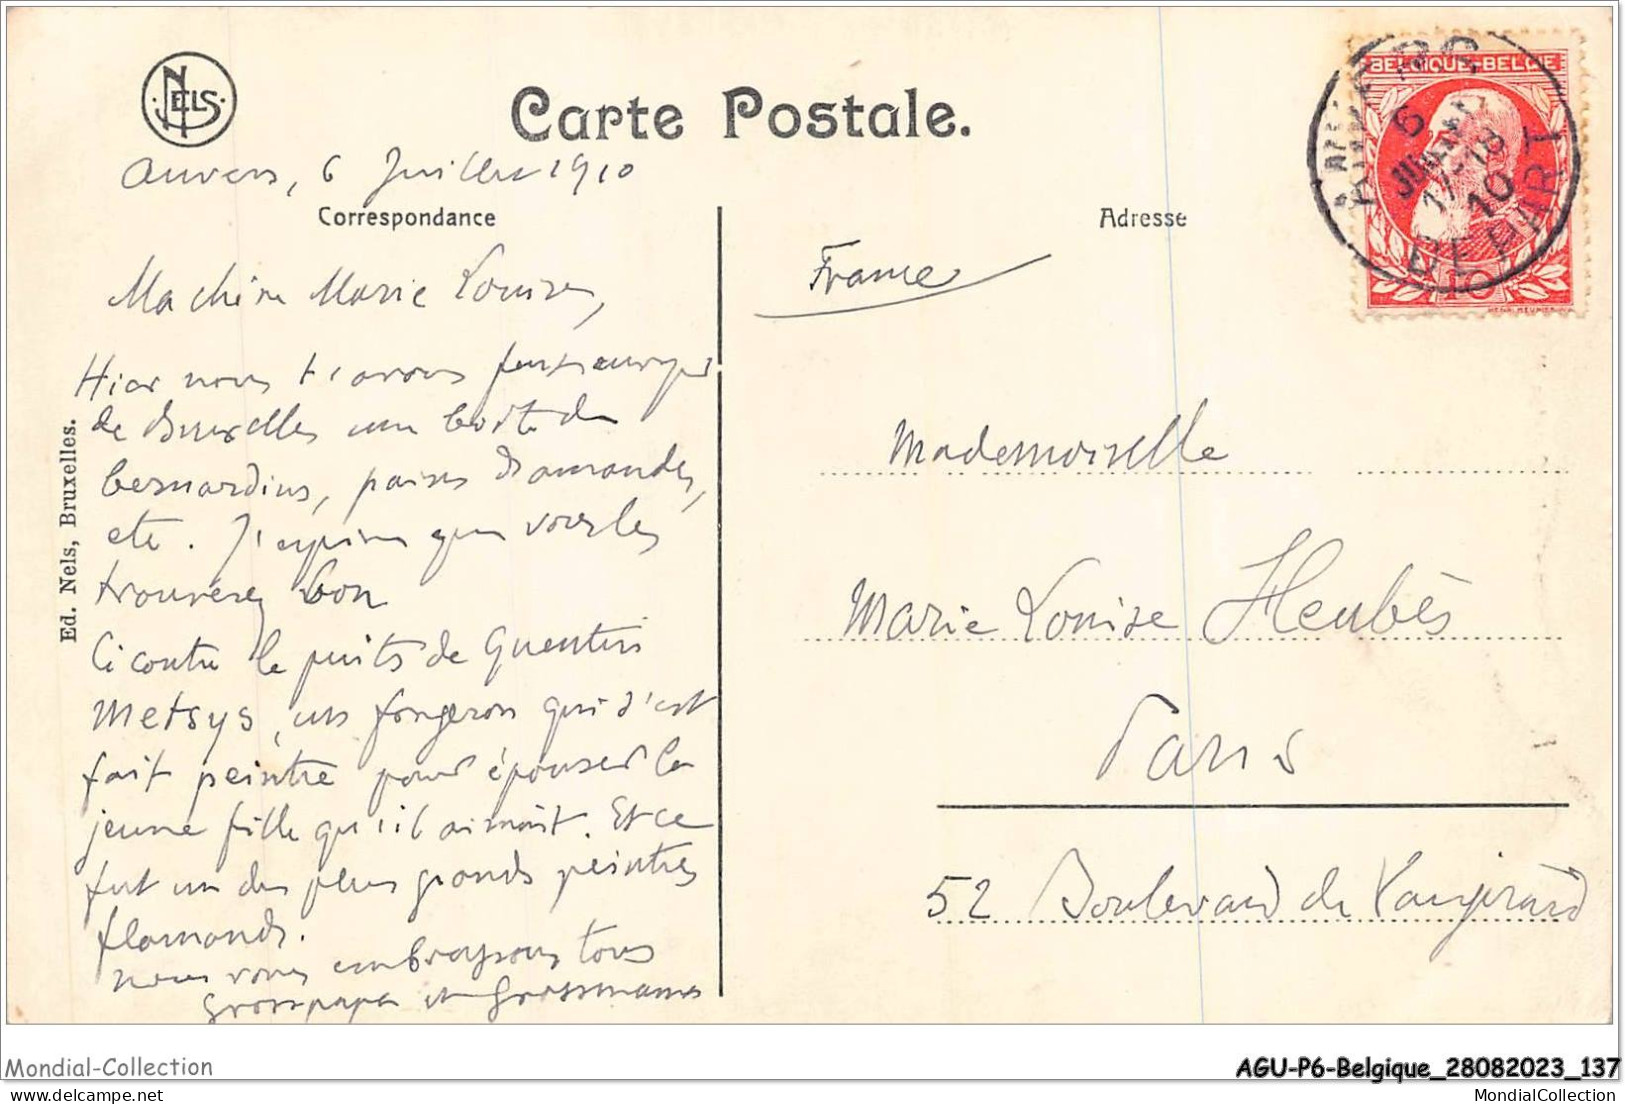 NELS
Carte Postale.
BELGIQUE-BELGIË
6
17-18
10
DEPART
10
Anvers, 6 Juillet 1910
Correspondance
Adresse
Ma chère Marie Louise,
France
Hier nous t'avons fait envoyer
de Bruxelles une boîte de
bernardins, pains d'amandes,
etc. J'espère que vous les
trouverez bon
Ci contre le puits de Quentin
Metsys, un forgeron qui s'est
fait peintre pour épouser la
jeune fille qu'il aimait. Et ce
fut un des plus grands peintres
flamands.
nous vous embrassons tous
Grosspapa et Grossmama
Ed. Nels, Bruxelles.
Mademoiselle
Marie Louise Heubès
Paris
52 Boulevard de Vaugirard
Mondial-Collection
AGU-P6-Belgique_28082023_137
MondialCollection
MondialCollection